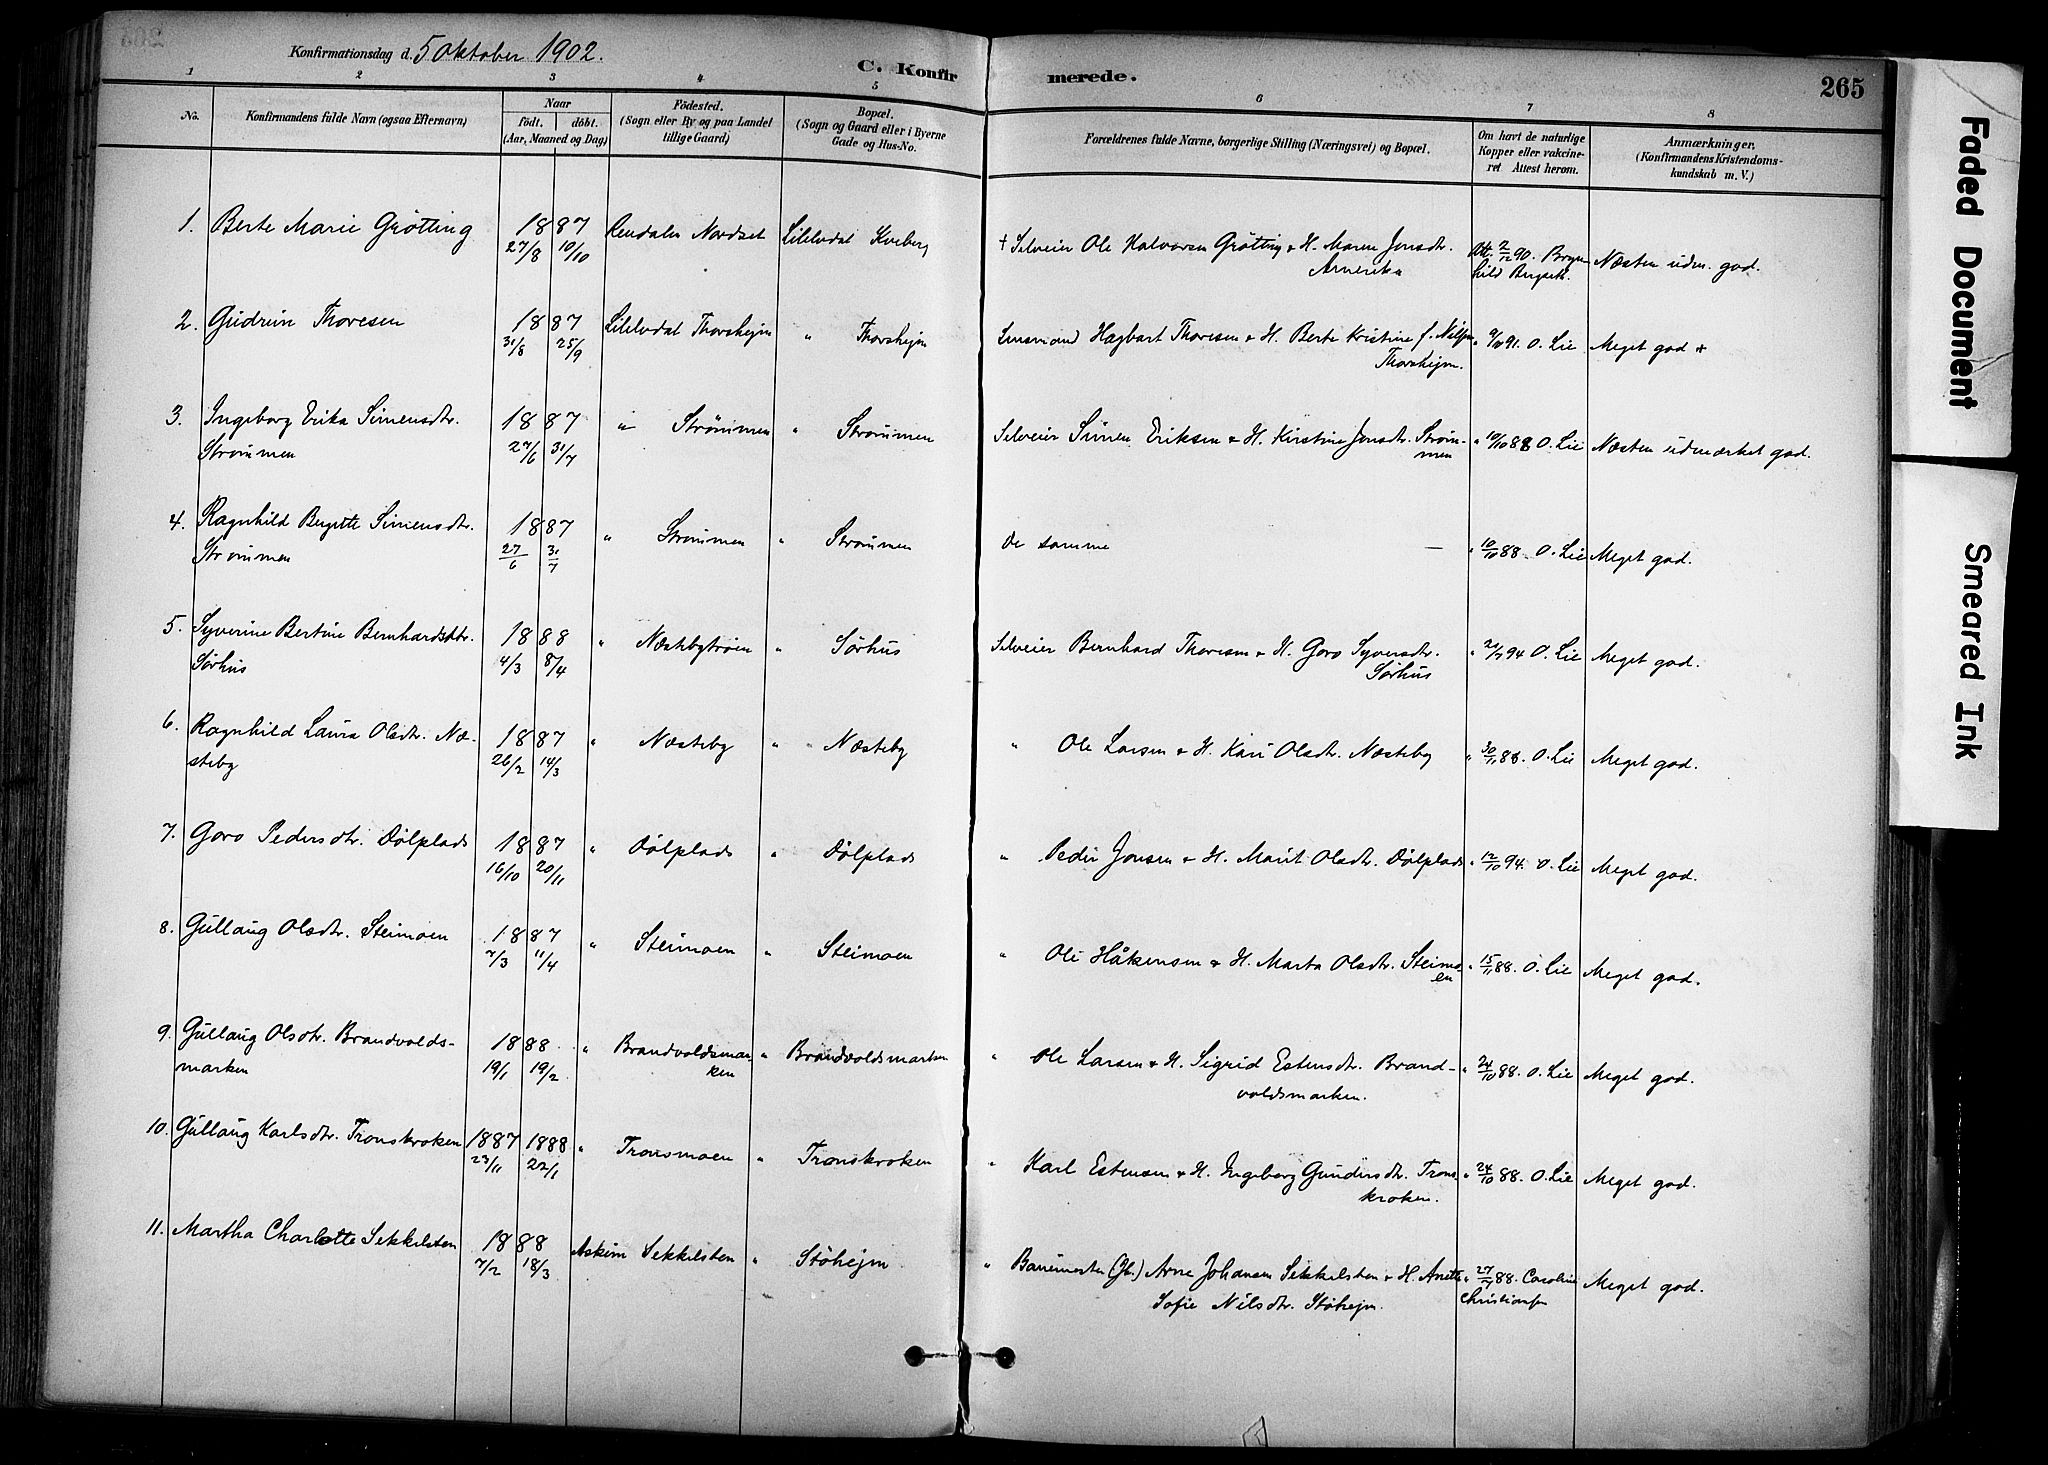 Konfirmationsdag d. 5 Oktober 1902.
C. Konfirmerede.
265
1 2 3 4 5 6 7 8
No.
Konfirmandens fulde Navn (ogsaa Efternavn)
Naar
födt. döbt.
(Aar, Maaned og Dag)
Födested.
(Sogn eller By og paa Landet
tillige Gaard)
Bopæl.
(Sogn og Gaard eller i Byerne
Gade og Hus-No.
Forældrenes fulde Navne, borgerlige Stilling (Næringsvei) og Bopæl.
Om havt de naturlige
Kopper eller vakcine-
ret Attest herom.
Anmærkninger.
(Konfirmandens Kristendoms-
kundskab m. V.)
1. Berte Marie Grötting 1887 27/8 10/10 Rendalen Nordset Lilleelvdal Kveberg
+ Selveier Ole Halvorsen Grötting & H. Maren Jonsdtr.
Amerika
Att. 2/12 90. Bryn-
hild
Næsten udm. god.
2. Gudrun Thoresen 1887 31/8 25/9 Thorshejm " Thorshejm
Lensmand Hagbart Thoresen & H. Berte Kristine f.
Thorshejm.
91. O. Lie Meget god +
3. Ingeborg Erika Simensdtr.
Strømmen
1887 27/6 31/7 " Strömmen " Strömmen
Selveier Simen Eriksen & H. Kirstine Jonsdtr. Ström-
men
" 10/10 88 O. Lie Næsten udmærket god.
4. Ragnhild Birgitte Simensdtr.
Strömmen
1887 27/6 31/7 " Strömmen " Strömmen
De samme — " 10/10 88. O. Lie Meget god.
5. Syverine Bertine Bernhardsdtr.
Sørhus
1888 4/3 8/4 " Næstebytröen " Sørhus
Selveier Bernhard Thoresen & H. Goro Syversdtr.
Sørhus
94 O. Lie Meget god.
6. Ragnhild Laura Olsdtr. Næ-
steby
1887 26/2 14/3 " Næsteby " Næsteby
" Ole Larsen & H. Kari Olsdtr. Næsteby
" 30/11 88. O. Lie Meget god.
7. Goro Pedersdtr. Dölplads 1887 16/10 20/11 " Dölplads " Dölplads
" Peder Jonsen & H. Marit Olsdtr. Dölplads " 12/10 94. O. Lie Meget god.
8. Gullaug Olsdtr. Steimoen 1887 7/3 11/4 " Steimoen " Steimoen
" Ole Håkensen & H. Marta Olsdtr. Steimo-
en
" 15/11 88. O. Lie Meget god.
9. Gullaug Olsdtr. Brandvolds-
marken
1888 19/1 19/2 " Brandvoldsmar-
ken
" Brandvoldsmarken
" Ole Larsen & H. Sigrid Estensdtr. Brand-
voldsmarken.
" 24/10 88. O. Lie Meget god.
10. Gullaug Karlsdtr. Tronskroken 1887 23/11 1888 22/1 " Tronsmoen " Tronskroken
" Karl Estensen & H. Ingeborg Gundersdtr. Trons-
kroken.
" 24/10 88. O. Lie Meget god.
11. Martha Charlotte Sekkelsten 1888 7/2 18/3 Askim Sekkelsten " Stöhejm
" Banemester (Gb.) Arne Johansen Sekkelsten & H. Anette
Sofie Nilsdtr. Stöhejm.
88. Caroline
Christiansen
Meget god.
Faded Document
Smeared Ink